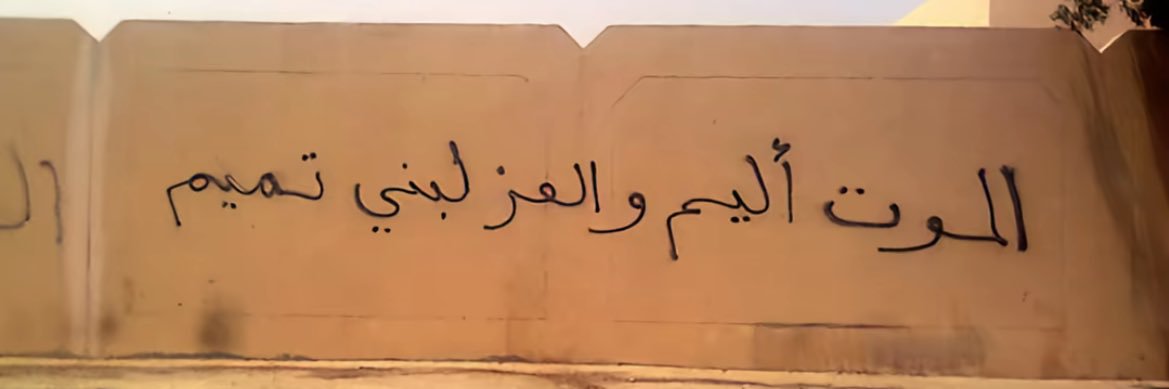 الموت أليم والعز لبني تميم
ال